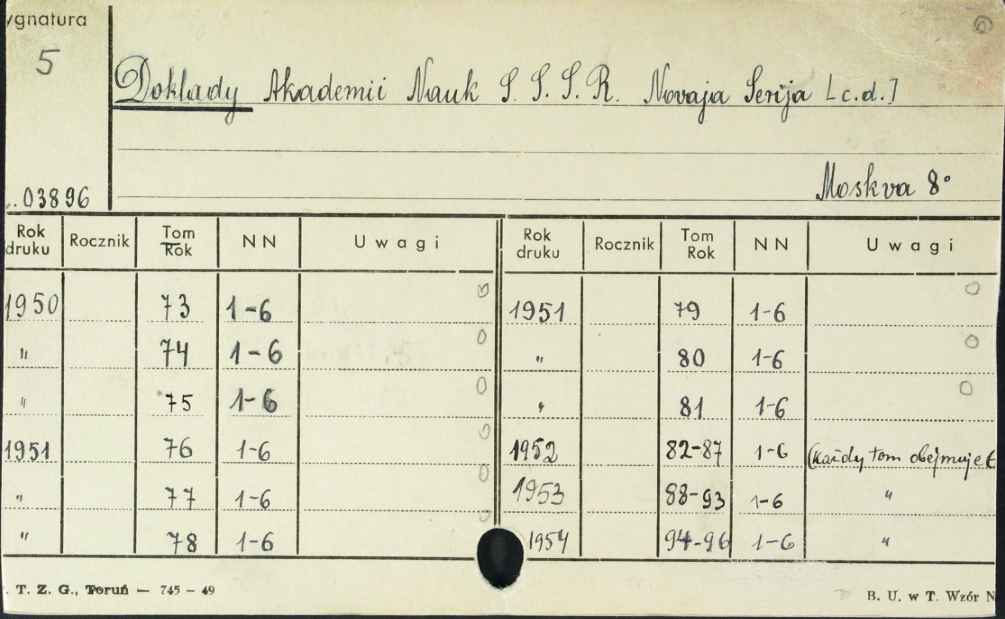 ygnatura
5
Doklady Akademii Nauk S. S. S. R. Novaja Serija [c.d.]
Moskva 8°
. 03896
Rok druku Rocznik Tom Rok N N U w a g i Rok druku Rocznik Tom Rok N N U w a g i
1950 73 1-6 0 1951 79 1-6 0
" 74 1-6 0 " 80 1-6 0
" 75 1-6 0 " 81 1-6 0
1951 76 1-6 0 1952 82-87 1-6 (każdy tom obejmuje 6
" 77 1-6 0 1953 88-93 1-6 "
" 78 1-6 0 1954 94-96 1-6 "
. T. Z. G., Toruń — 745 — 49 B. U. w T. Wzór N